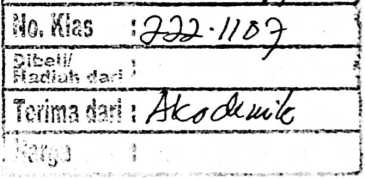 No. Klas : 222.1107
Dibeli/
Hadiah dari :
Terima dari : Akademik
Harga :